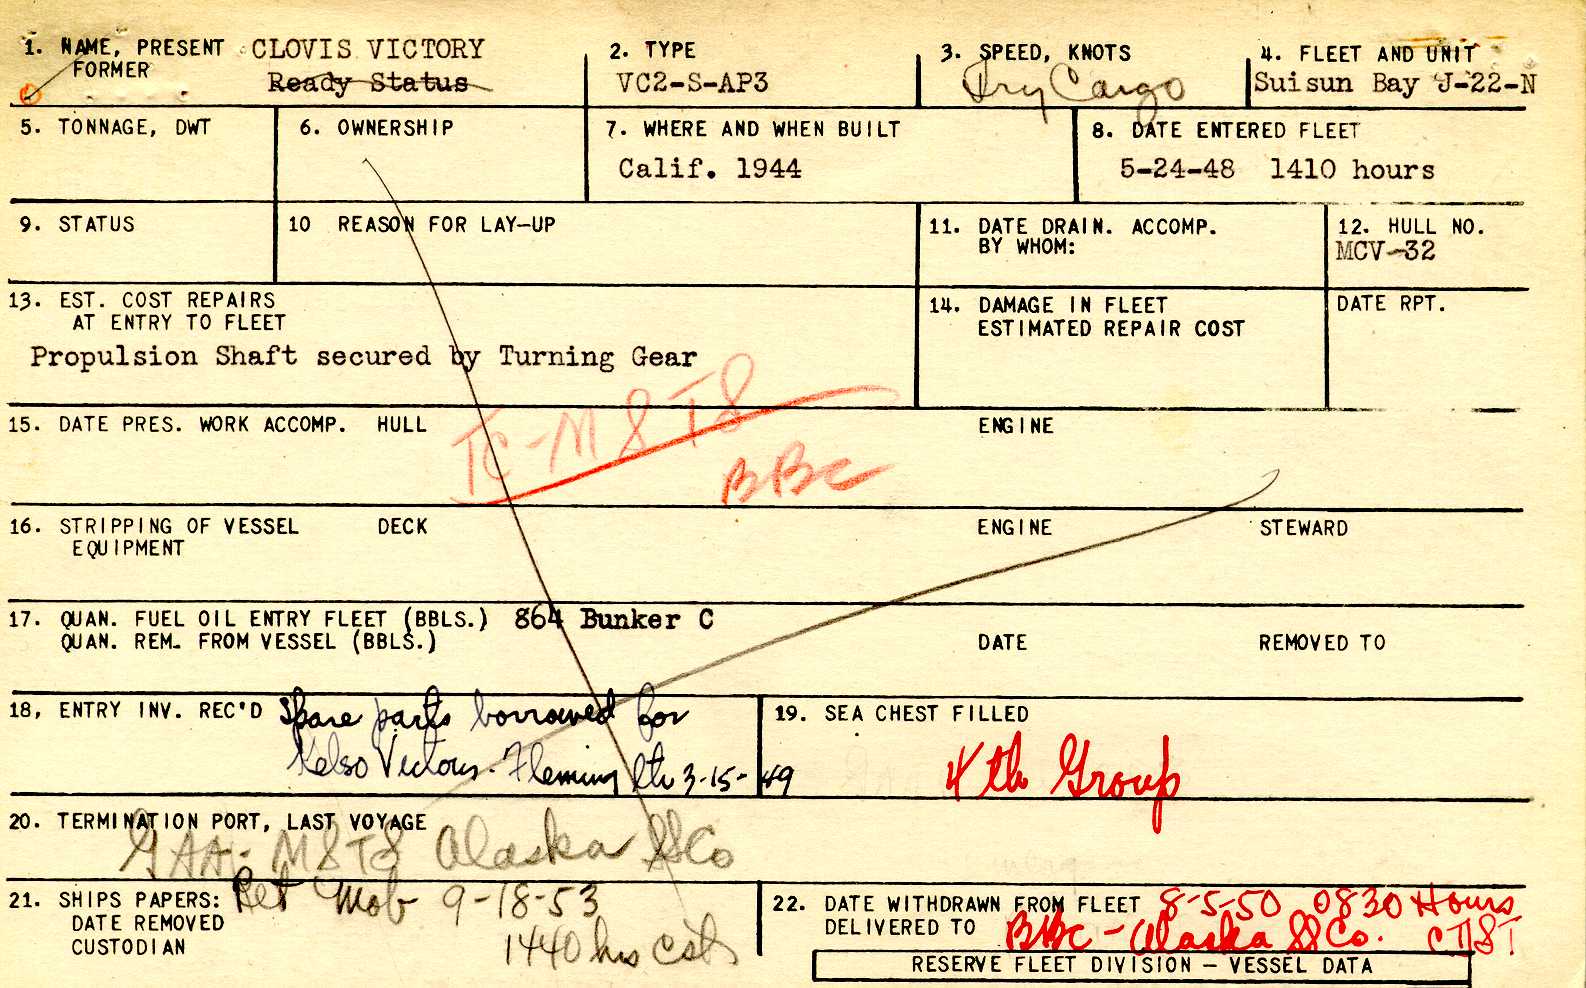 1. NAME, PRESENT CLOVIS VICTORY
FORMER Ready Status
2. TYPE
VC2-S-AP3
3. SPEED, KNOTS
Dry Cargo
4. FLEET AND UNIT
Suisun Bay J-22-N
5. TONNAGE, DWT
6. OWNERSHIP
7. WHERE AND WHEN BUILT
Calif. 1944
8. DATE ENTERED FLEET
5-24-48 1410 hours
9. STATUS
10 REASON FOR LAY-UP
11. DATE DRAIN. ACCOMP.
BY WHOM:
12. HULL NO.
MCV-32
13. EST. COST REPAIRS
AT ENTRY TO FLEET
Propulsion Shaft secured by Turning Gear
14. DAMAGE IN FLEET
ESTIMATED REPAIR COST
DATE RPT.
TC-MSTS
BBC
15. DATE PRES. WORK ACCOMP. HULL ENGINE
16. STRIPPING OF VESSEL DECK ENGINE STEWARD
EQUIPMENT
17. QUAN. FUEL OIL ENTRY FLEET (BBLS.) 864 Bunker C
QUAN. REM. FROM VESSEL (BBLS.) DATE REMOVED TO
18, ENTRY INV. REC'D Spare parts borrowed for
Kelso Victory. Fleming ltr 3-15-49
19. SEA CHEST FILLED
4th Group
20. TERMINATION PORT, LAST VOYAGE
GAA-MSTS Alaska SSCo
21. SHIPS PAPERS: Ret Mob 9-18-53
DATE REMOVED
CUSTODIAN 1440 hrs
22. DATE WITHDRAWN FROM FLEET 8-5-50 0830 Hours
DELIVERED TO BBC-Alaska SSCo.
RESERVE FLEET DIVISION – VESSEL DATA